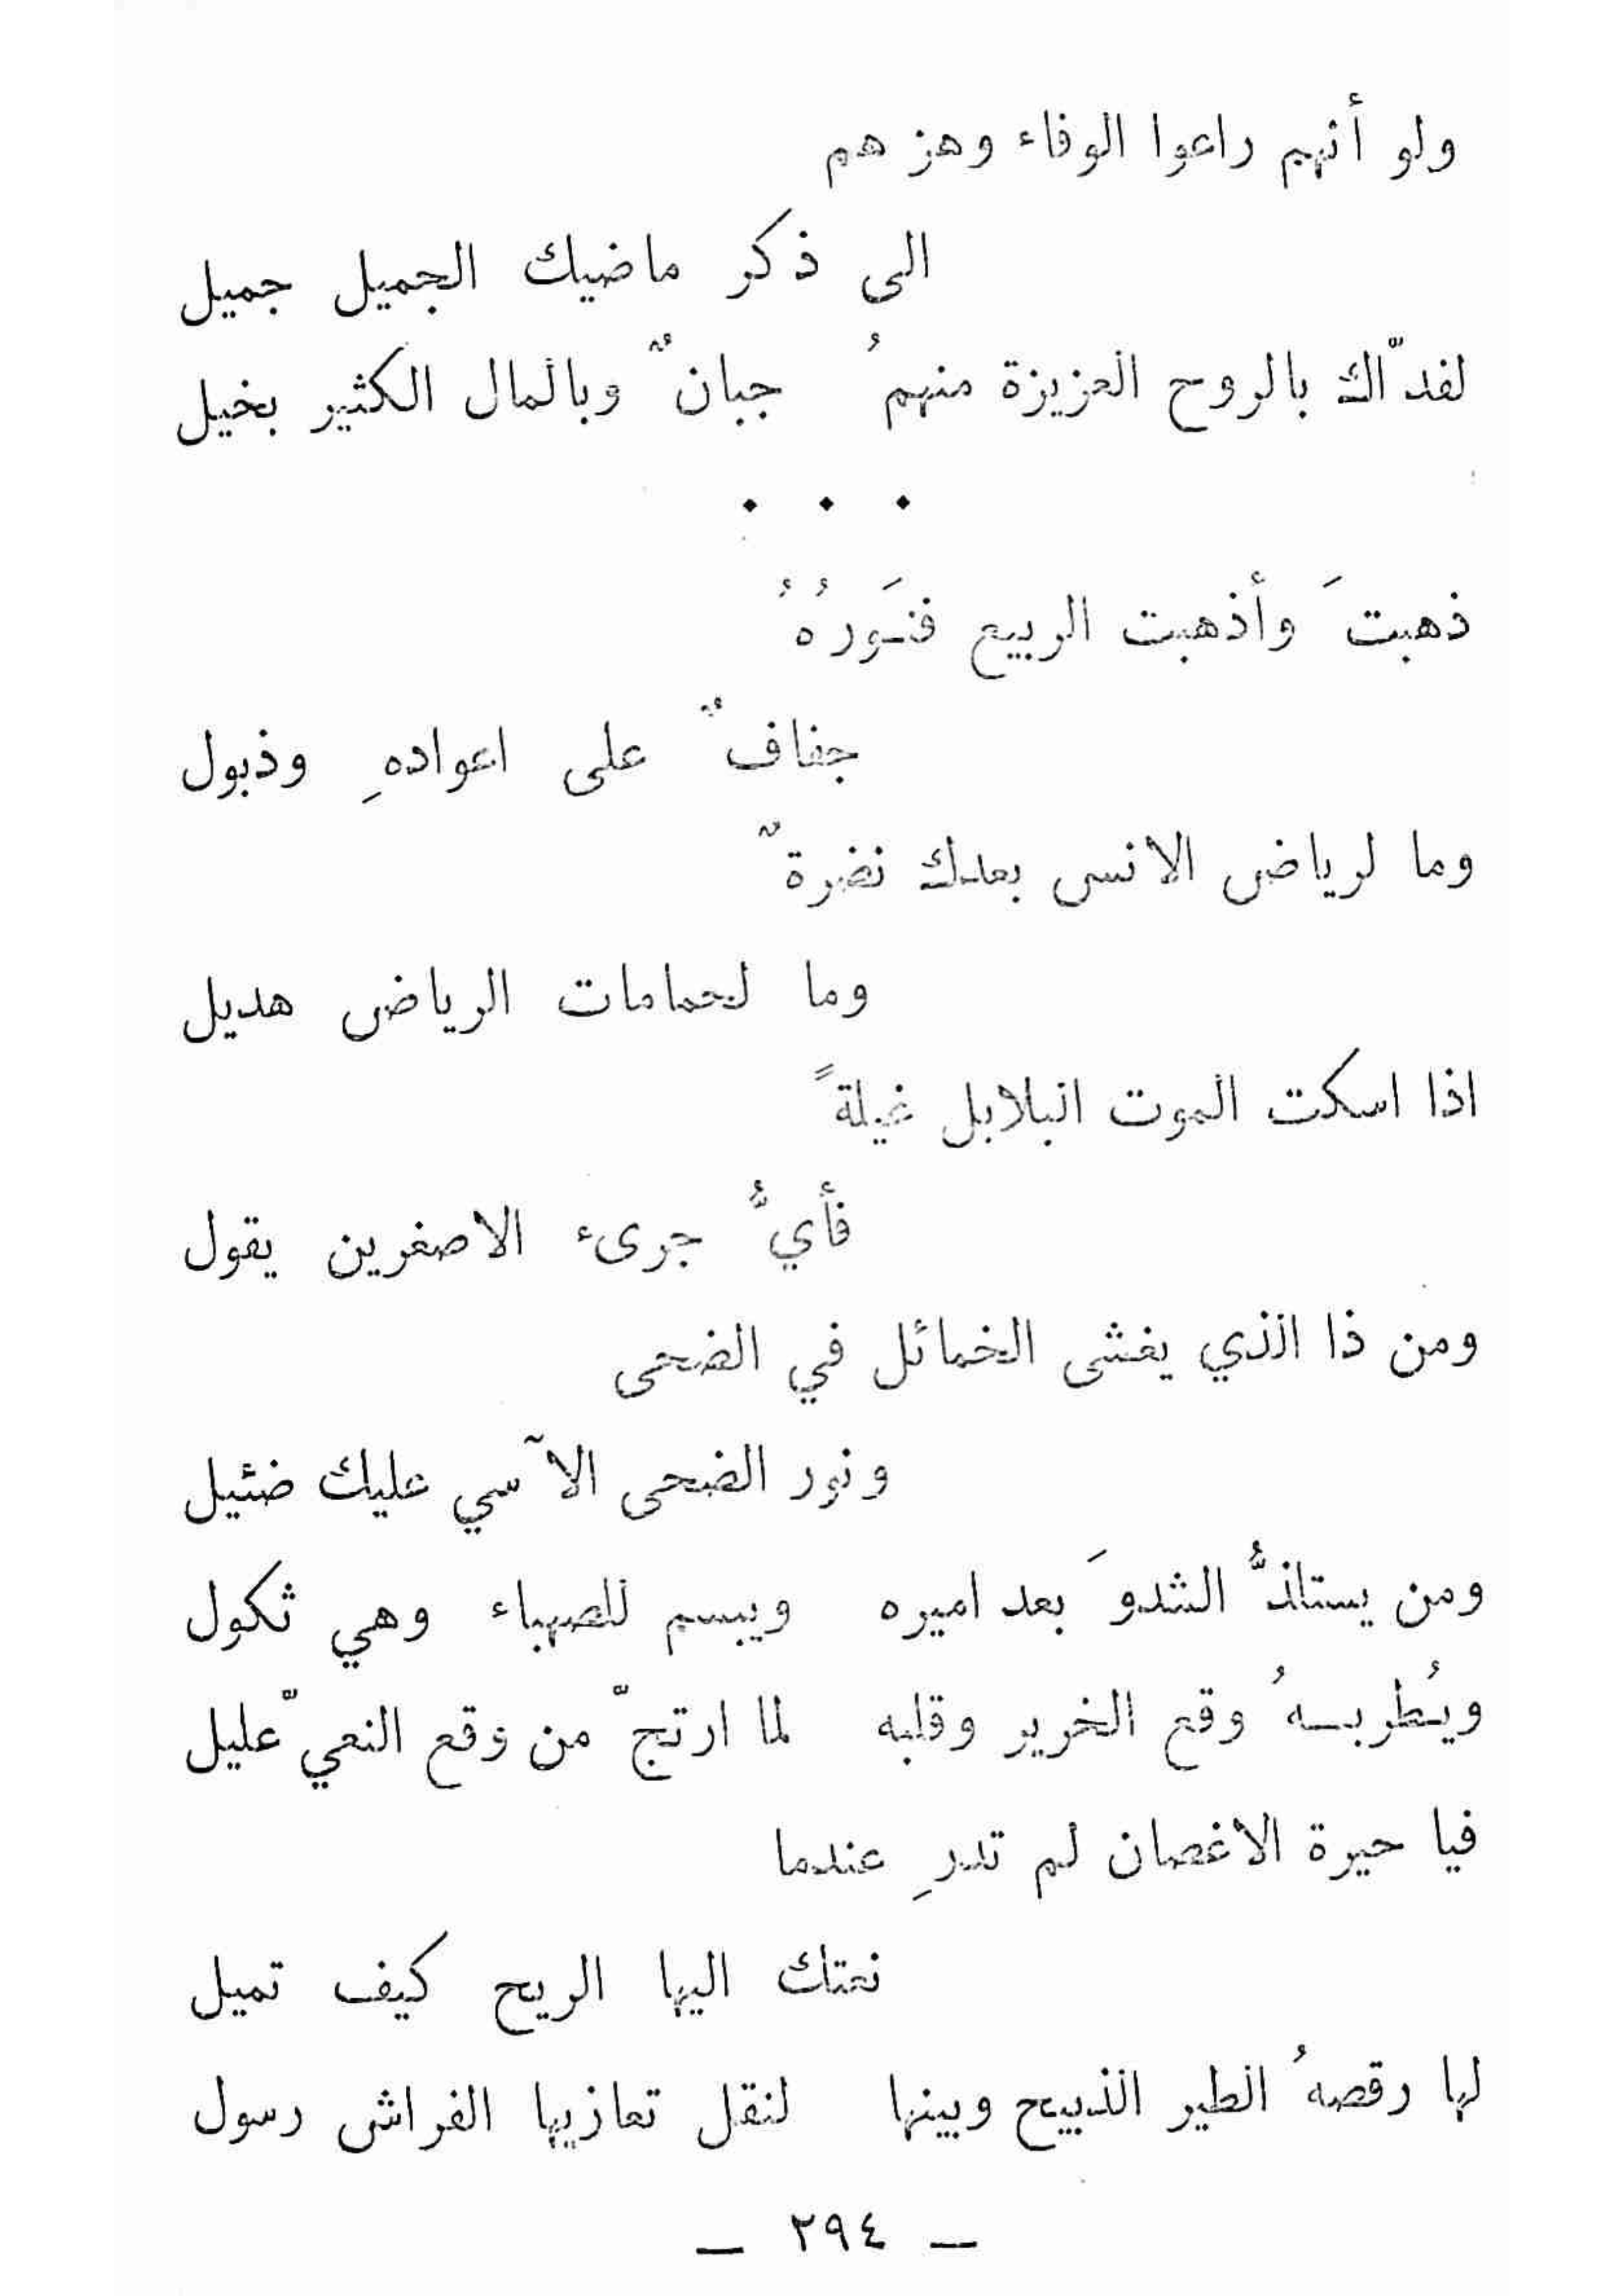 ولو أنهم راعوا الوفاء وهزهم
الى ذكر ماضيك الجميل جميل
لفدّاك بالروح العزيزة منهمُ جبانٌ وبالمال الكثير بخيل
. . .
ذهبتَ وأذهبت الربيع فنَورُهُ
جفافٌ على اعوادهِ وذبول
وما لرياض الانس بعدك نضرةٌ
وما لحمامات الرياض هديل
اذا اسكت الموت البلابل غيلةً
فأيُّ جرىء الاصغرين يقول
ومن ذا الذي يغشى الخمائل في الضحى
ونور الضحى الآسي عليك ضئيل
ومن يستلذُّ الشدوَ بعد اميره ويبسم للصهباء وهي ثكول
ويُطربـهُ وقع الخرير وقلبه لما ارتجّ من وقع النعيّ عليل
فيا حيرة الاغصان لم تدرِ عندما
نعتك اليها الريح كيف تميل
لها رقصهُ الطير الذبيح وبينها لنقل تعازيها الفراش رسول
— ٢٩٤ —